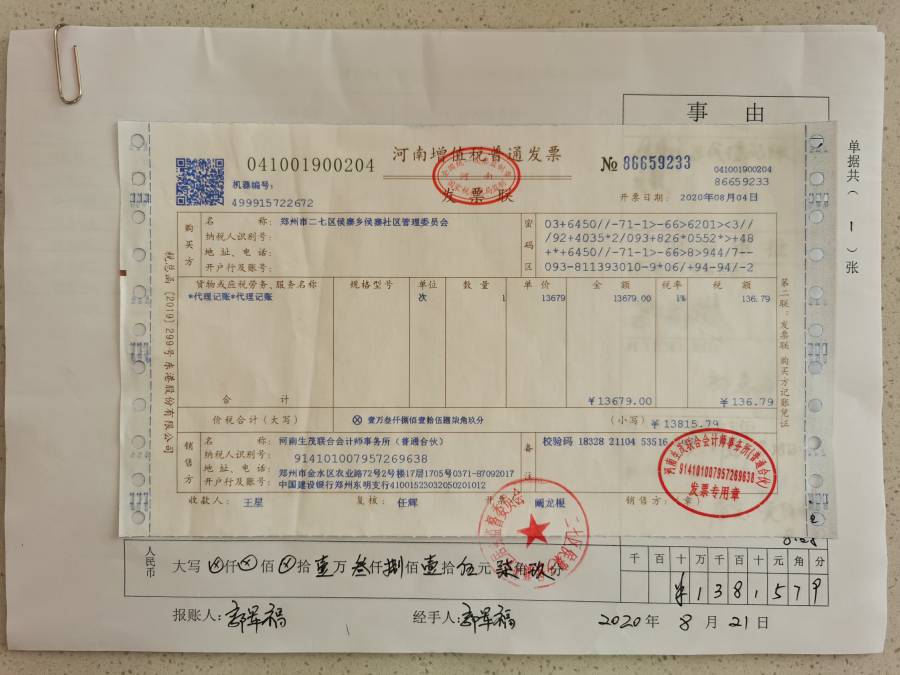 事 由
单据共(1)张
041001900204
河南增值税普通发票
发票联
№ 86659233
041001900204
86659233
机器编号:
499915722672
开票日期: 2020年08月04日
税总函〔2019〕299号 东港股份有限公司
购买方
名 称: 郑州市二七区侯寨乡侯寨社区管理委员会
纳税人识别号:
地 址、电 话:
开户行及账号:
密码区
03+6450//-71-1>-66>6201<3//
/92+4035*2/093+826*0552*>+48
+*+6450//-71-1>-66>8>944/7--
093-811393010-9*06/+94-94/-2
货物或应税劳务、服务名称 规格型号 单位 数 量 单 价 金 额 税率 税 额
*代理记账*代理记账 次 1 13679 13679.00 1% 136.79
合 计 ¥13679.00 ¥136.79
价税合计(大写) ⊗ 壹万叁仟捌佰壹拾伍圆柒角玖分 (小写) ¥13815.79
第二联:发票联 购买方记账凭证
销售方
名 称: 河南生茂联合会计师事务所(普通合伙)
纳税人识别号: 914101007957269638
地 址、电 话: 郑州市金水区农业路72号2号楼17层1705号0371-87092017
开户行及账号: 中国建设银行郑州东明支行41001523032050201012
备注
校验码 18328 21104 53516
河南生茂联合会计师事务所(普通合伙)
914101007957269638
发票专用章
收款人: 王星 复核: 任辉 开票 阚龙根 销售方:(章)
人民币 大写 ⊗仟⊗佰⊗拾壹万叁仟捌佰壹拾伍元柒角玖分
千 百 十 万 千 百 十 元 角 分
¥ 1 3 8 1 5 7 9
报账人: 经手人: 2020年 8月21日